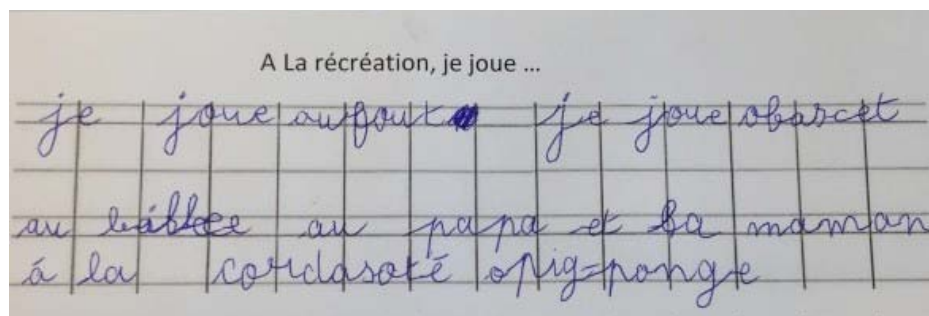 A La récréation, je joue ...
je joue au fout je joue obascet
au au papa et la maman
á la cordasoté opig=ponge